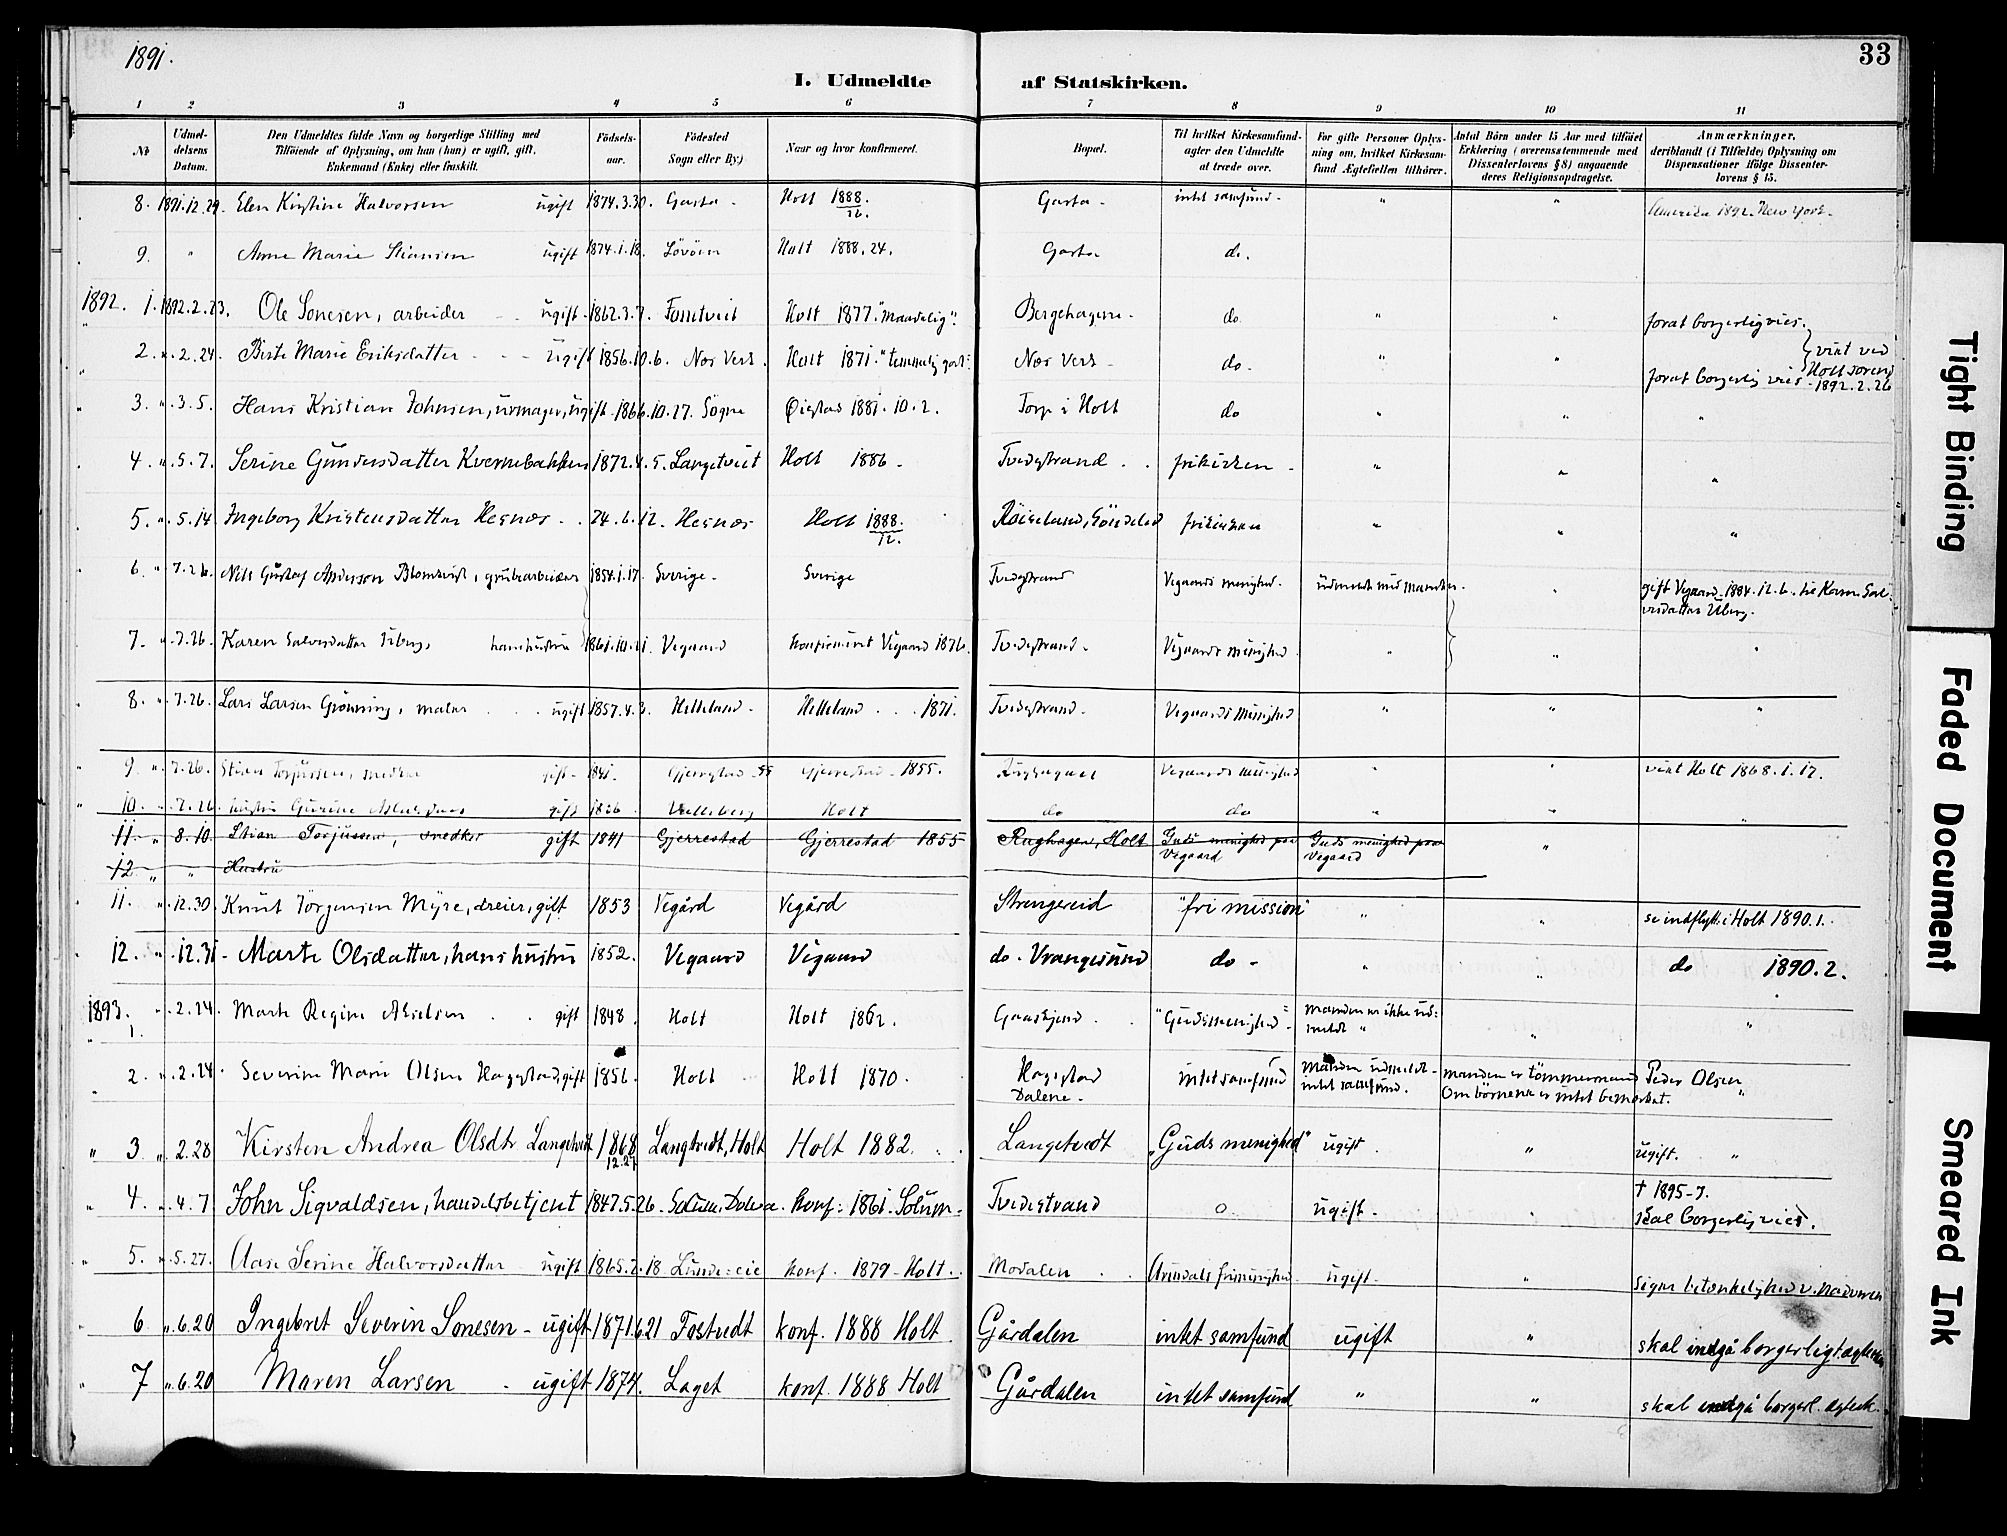 1891.
33
I. Udmeldte af Statskirken.
1 2 3 4 5 6 7 8 9 10 11
No
Udmel-
delsens
Datum.
Den Udmeldtes fulde Navn og borgerlige Stilling med
Tilföiende af Oplysning, om han (hun) er ugift, gift,
Enkemand (Enke) eller fraskilt.
Födsels-
aar.
Födested
Sogn eller By.)
Naar og hvor konfirmeret.
Bopæl.
Til hvilket Kirkesamfund-
agter den Udmeldte
at træde over.
For gifte Personer Oplys-
ning om, hvilket Kirkesam-
fund Ægtefællen tilhörer.
Antal Börn under 15 Aar med tilföiet
Erklæring (overensstemmende med
Dissenterlovens § 8) angaaende
deres Religionsopdragelse.
Anmærkninger,
deriblandt (i Tilfælde) Oplysning om
Dispensationer ifölge Dissenter-
lovens § 15.
8. 1891.12.29. Elen Kirstine Halvorsen ugift 1874.3.30. Garta - Holt 1888. Garta - intet samfund - " " Amerika 1892. New York.
9. " Anne Marie ugift 1874.1.18. Holt 1888.24. Garta do.
1892. 1. 1892.2.23. Ole Sonesen, arbeider - - ugift - 1862.3.7. Fosstveit Holt 1877. "Maadelig". Bergehagene - do. " " forat borgerlig vies.
2. " . 2.24. Birte Marie Eriksdatter - - - ugift 1856.10.6. Næs Verk. Holt 1871. "temmelig godt". Næs Verk - do. " " forat borgerlig vies -
viet ved
Holt soren
1892.2.26
3. " . 3.5. Hans Kristian Johnsen, urmager, ugift - 1866.10.27. Sogne Øiestad 1881.10.2. Torp i Holt do " " "
4. " . 5.7. Serine Gundersdatter Kvernebakken 1872.4.5. Langetveit Holt 1886 - Tvedestrand . . frikirken - " " "
5. " . 5.14. Ingeborg Kristensdatter Hegnæs . . 74.6.12. Hegnæs Holt 1888. Røiseland, Søndeled frikirken " " "
12.
6. " 7.26. Nils Gustaf Anderson Blomkvist, grubearbeider 1854.1.17. Sverige - Sverige Tvedestrand Vegaards menighed - udmeldt med Manden. " gift Vegaard 1884.12.6. til Karen Sal-
vesdatter Uberg.
7. " . 7.26. Karen Salvesdatter Uberg, hans hustru 1861.10.21. Vegaard konfirmeret Vegaard 1876. Tvedestrand - Vegaards menighed " " "
8. " . 7.26. Lars Larsen Grønning, maler . . . ugift 1857.4.3. Helleland - Helleland . . . 1871. Tvedestrand - Vegaards menighed " " "
9 " . 7.26. Stian Torjussen, snedker gift - 1841. Gjerrestad Gjerrestad - 1855. Rughagen Vegaards menighed " " viet Holt 1868.1.12.
10. " . 7.26. hustru Gurine gift 1836 Holt do do " " "
11 " 8.10. Stian Torjussen, snedker gift 1841 Gjerrestad Gjerrestad 1855 Rughagen, Holt Guds menighed paa Guds menighed paa "
Vegaard Vegaard
12 " " Hustru
11. " . 12.30. Knut Jørgensen Myre, dreier, gift 1853 Vegård Vegård Strengereid "fri mission" " " se indflytt. i Holt 1890.1.
12. " . 12.31 - Marte Olsdatter, hans hustru 1852. Vegaard Vegaard do. Vrangesund do - " " do 1890.2.
1893. 1. " . 2.24. Marte Regine Akselsen . . gift 1848. Holt Holt 1862. Gaaskjend . . "Gudsmenighed" Manden er ikke ud-
meldt " " "
2. " . 2.24. Severine Marie Olsen Hagestad, gift 1856. Holt Holt 1870. Hagestad intet samfund Manden udmeldt - manden er tömmermand Peder Olsen
Dalene - intet samfund. Om börnene er intet bemerket. "
" 3 " 2.28 Kirsten Andrea Olsdtr Langetvedt 1868 Langtvedt, Holt Holt 1882. Langetvedt "Guds menighed" ugift . " ugift. "
12.27
" 4. " . 4.7 John Sigvaldsen, handelsbetjent 1847.5.26. Solum, konf: 1861. Solum. Tvedestrand o. ugift - † 1895-7.
skal borgerlig vies.
5. " . 5.27. Aase Serine Halvorsdatter ugift 1865.2.18 Lunde-eie konf. 1879 - Holt. Modalen . . Arendals frimenighed ugift - " betænkelighed v. Nadveren
6 " . 6.20 Ingebret Severin Sonesen - ugift 1871.6.21 Fostvedt konf. 1888 Holt Gårdalen intet samfund ugift " skal indgå borgerligt ægtesk.
7 " . 6.20 Maren Larsen - ugift 1874. Laget konf. 1888 Holt Gårdalen intet samfund " " skal indgå borgerl. ægtesk.
Tight Binding
Faded Document
Smeared Ink